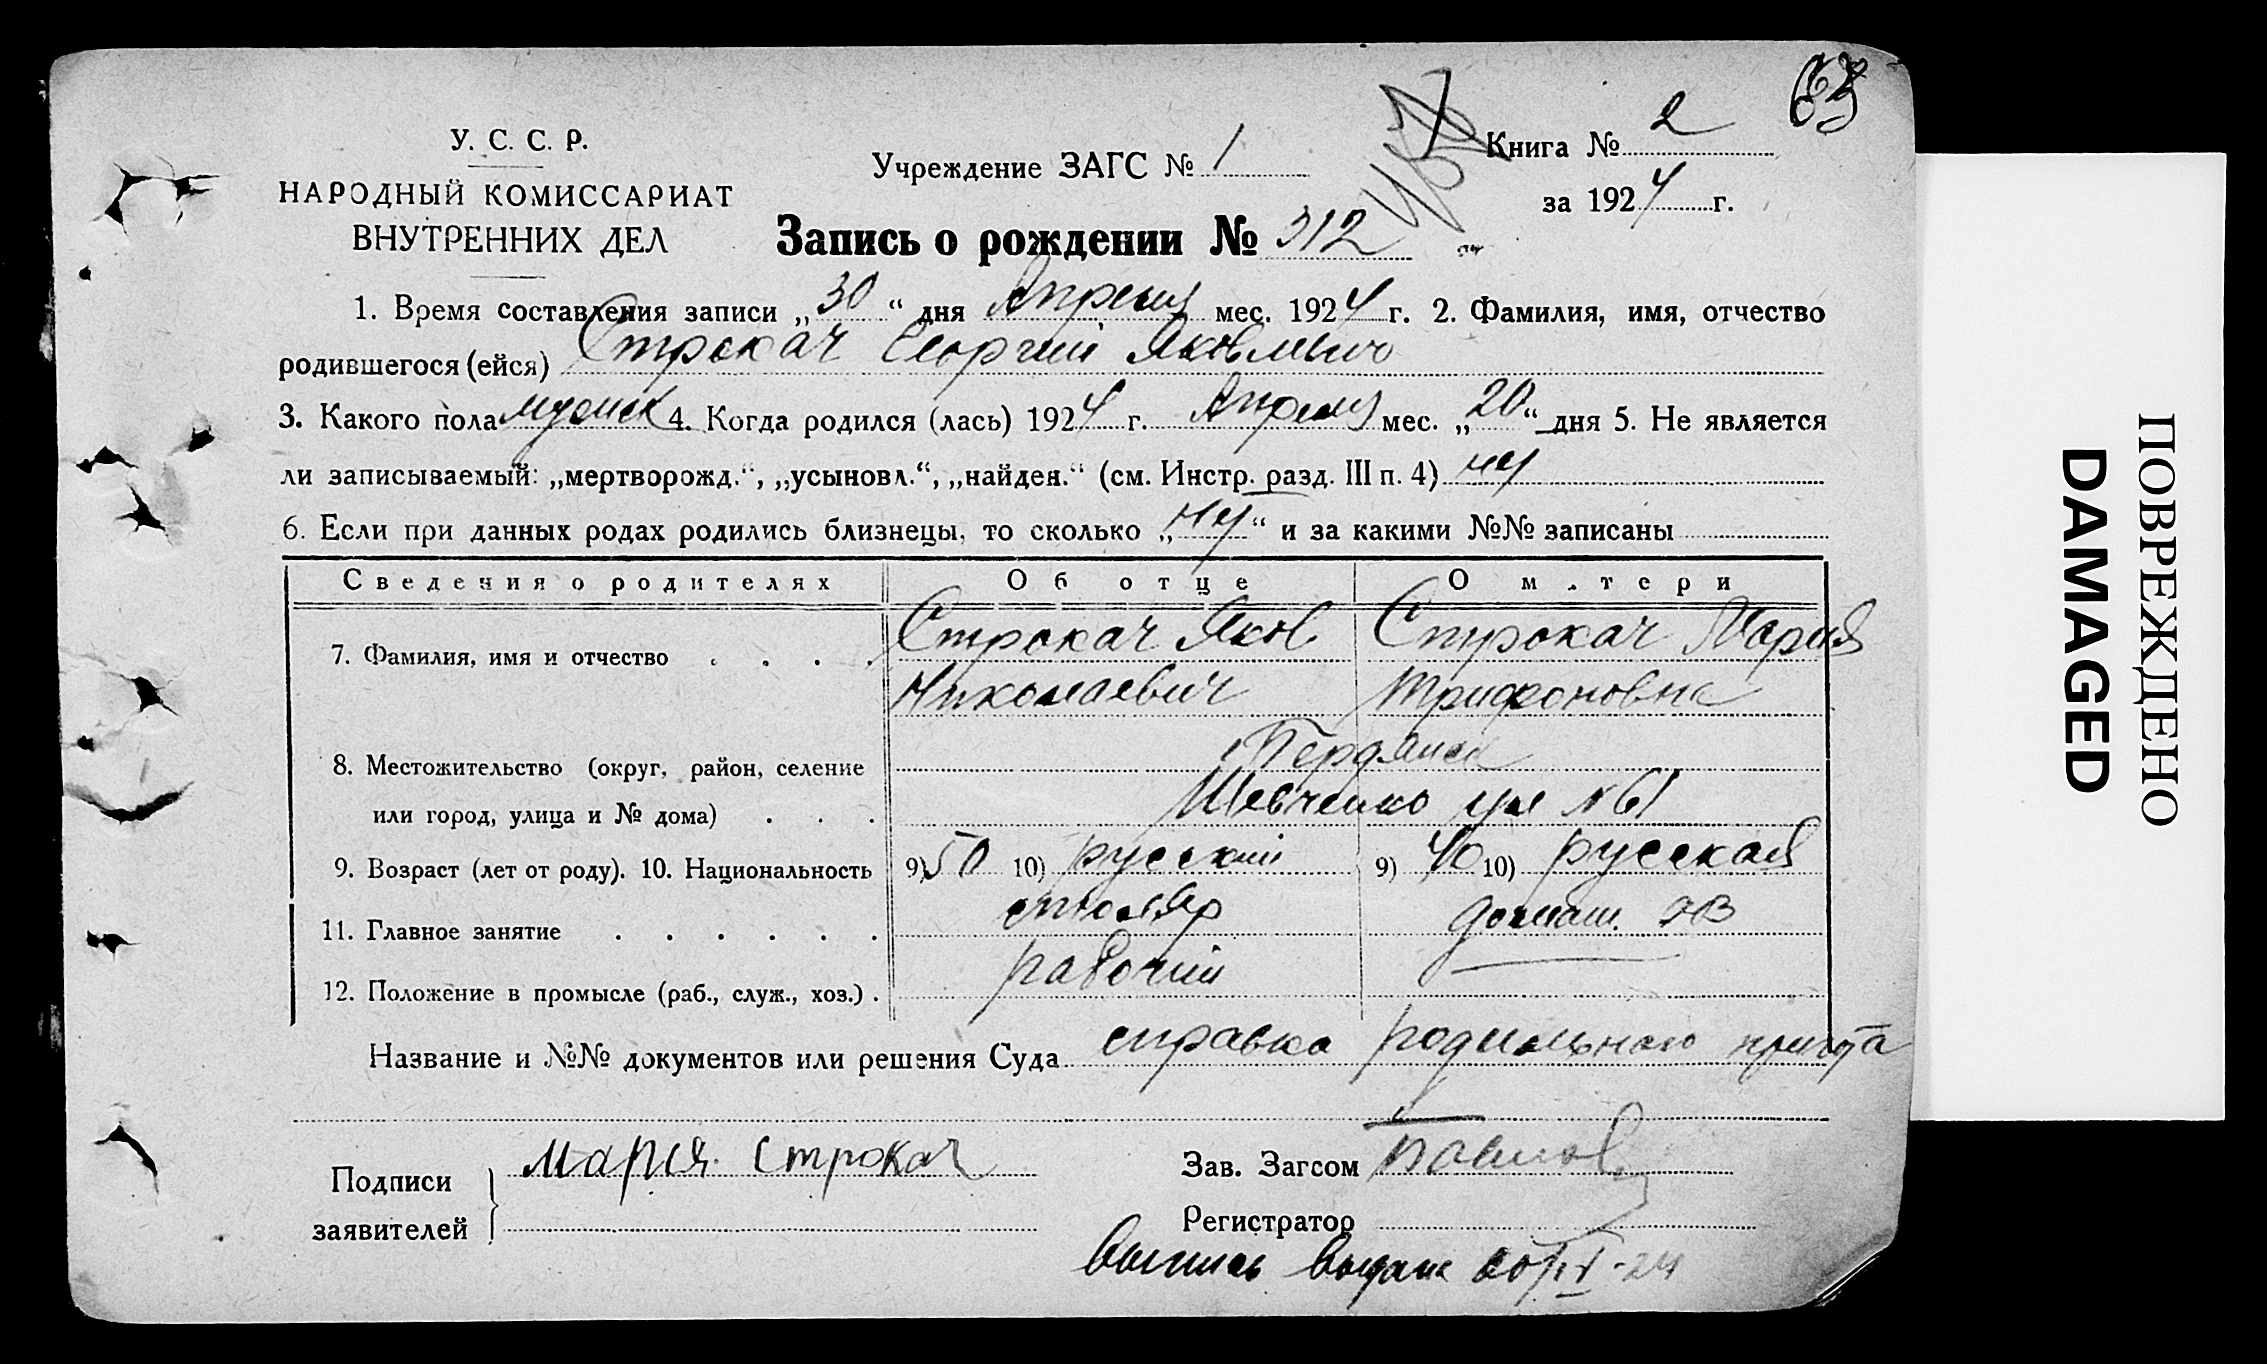 У. С. С. Р.
НАРОДНЫЙ КОМИССАРИАТ
ВНУТРЕННИХ ДЕЛ
Учреждение ЗАГС № 1
Книга № 2
за 1924 г.
Запись о рождении № 312
1. Время составления записи „30“ дня Апреля мес. 1924 г. 2. Фамилия, имя, отчество
родившегося (ейся) Строкач Георгий Яковлевич
3. Какого пола мужск 4. Когда родился (лась) 1924 г. Апреля мес. „20“ дня 5. Не является
ли записываемый: „мертворожд.“, „усыновл.“, „найден.“ (см. Инстр. разд. III п. 4) нет
6. Если при данных родах родились близнецы, то сколько „нет“ и за какими №№ записаны
Сведения о родителях Об отце О матери
7. Фамилия, имя и отчество Строкач Яков Строкач Мария
Николаевич Трифоновна
8. Местожительство (округ, район, селение Бердянск
или город, улица и № дома) Шевченко ул № 61
9. Возраст (лет от роду). 10. Национальность 9) 50 10) русский 9) 40 10) русская
11. Главное занятие столяр домаш. хоз
12. Положение в промысле (раб., служ., хоз.) рабочий
Название и №№ документов или решения Суда справка родильного приюта
Подписи
заявителей
Мария Строкач
Зав. Загсом
Регистратор
Выпись выдана 20/IV-24
ПОВРЕЖДЕНО
DAMAGED